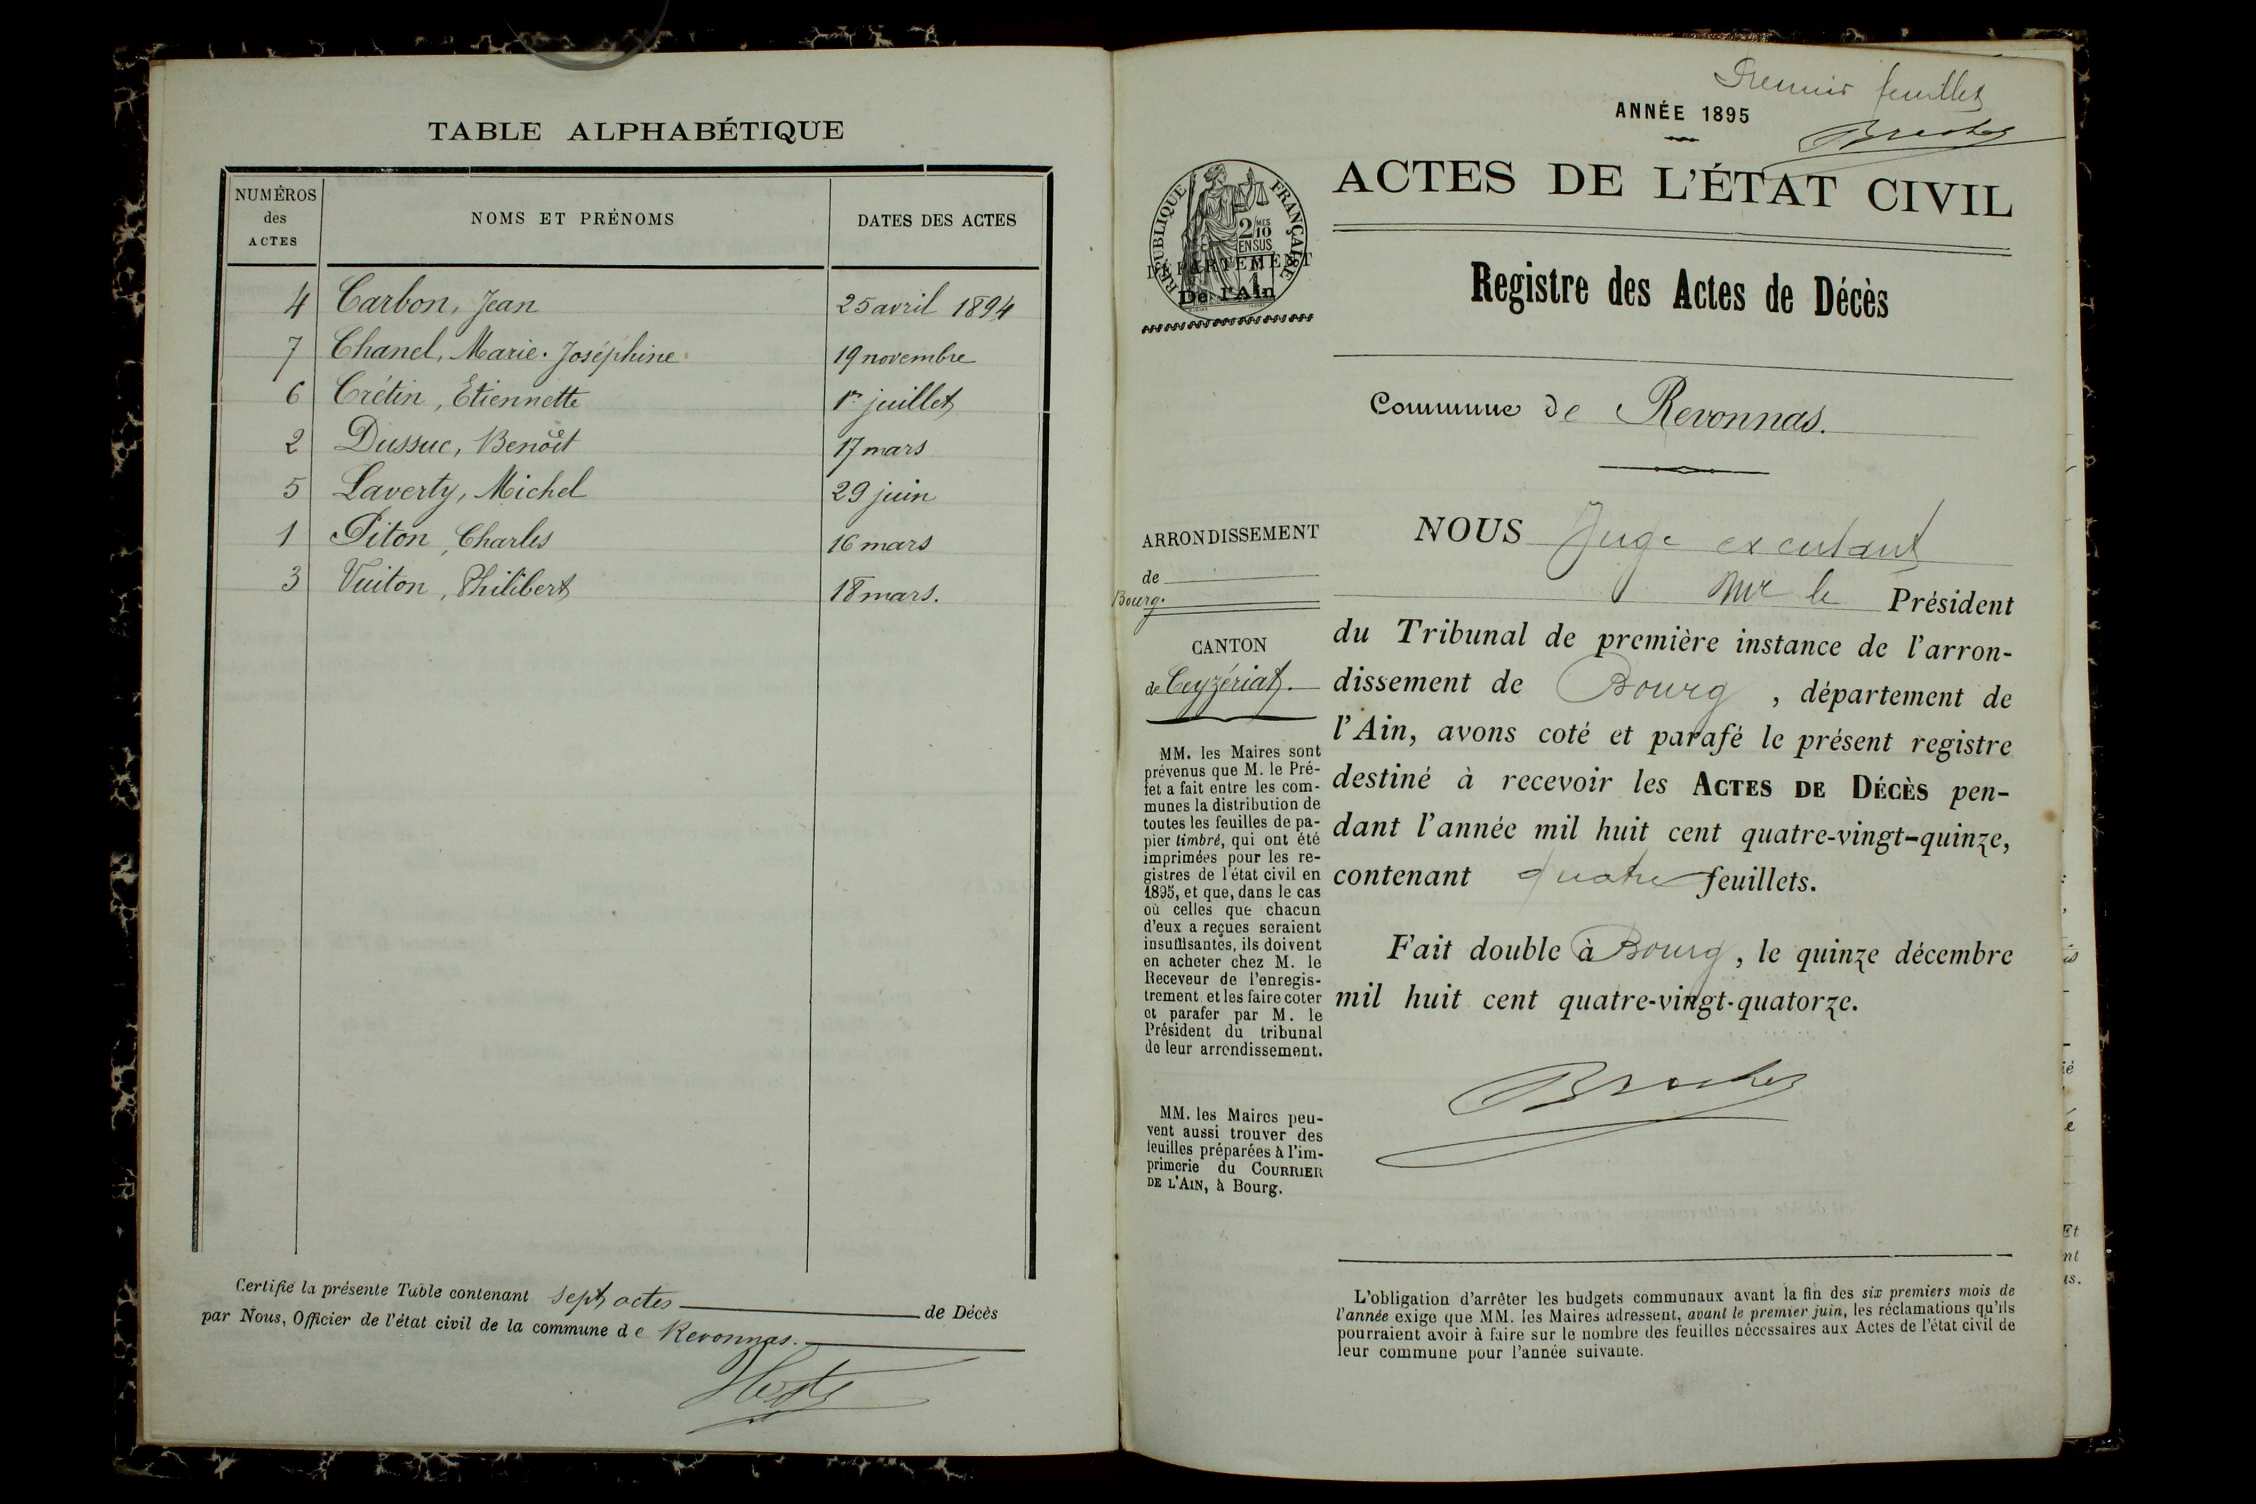 TABLE ALPHABÉTIQUE
NUMÉROS
des
ACTES
NOMS ET PRÉNOMS
DATES DES ACTES
4 Carbon, Jean 25 avril 1894
7 Chanel, Marie-Joséphine 19 novembre
6 Crétin, Etiennette 1er juillet
2 Dussuc, Benoît 17 mars
5 Laverty, Michel 29 juin
1 Piton, Charles 16 mars
3 Vuiton, Philibert 18 mars.
Certifié la présente Table contenant sept actes de Décès
par Nous, Officier de l'état civil de la commune de Revonnas.
Premier feuillet
ANNÉE 1895
RÉPUBLIQUE FRANÇAISE
2/10
EN SUS
DÉPARTEMENT
De l'Ain
ACTES DE L'ÉTAT CIVIL
Registre des Actes de Décès
Commune de Revonnas.
ARRONDISSEMENT
de
Bourg.
CANTON
de Ceyzériat.
MM. les Maires sont
prévenus que M. le Pré-
fet a fait entre les com-
munes la distribution de
toutes les feuilles de pa-
pier timbré, qui ont été
imprimées pour les re-
gistres de l'état civil en
1895, et que, dans le cas
où celles que chacun
d'eux a reçues seraient
insuffisantes, ils doivent
en acheter chez M. le
Receveur de l'enregis-
trement et les faire coter
et parafer par M. le
Président du tribunal
de leur arrondissement.
MM. les Maires peu-
vent aussi trouver des
feuilles préparées à l'im-
primerie du COURRIER
DE L'AIN, à Bourg.
NOUS Juge
Mr le Président
du Tribunal de première instance de l'arron-
dissement de Bourg, département de
l'Ain, avons coté et parafé le présent registre
destiné à recevoir les ACTES DE DÉCÈS pen-
dant l'année mil huit cent quatre-vingt-quinze,
contenant quatre feuillets.
Fait double à Bourg, le quinze décembre
mil huit cent quatre-vingt-quatorze.
L'obligation d'arrêter les budgets communaux avant la fin des six premiers mois de
l'année exige que MM. les Maires adressent, avant le premier juin, les réclamations qu'ils
pourraient avoir à faire sur le nombre des feuilles nécessaires aux Actes de l'état civil de
leur commune pour l'année suivante.